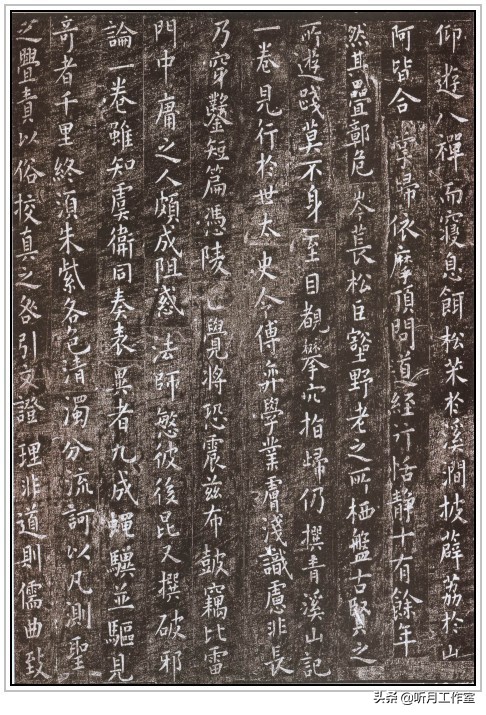 仰遊八禪而寢息餌松朮於溪澗披薜荔於山
阿皆合掌歸依摩頂問道經行恬靜十有餘年
然其疊鄣危岑萇松巨壑野老之所栖盤古賢之
所遊踐莫不身至目覩攀穴指歸仍撰青溪山記
一卷見行於世太史令傅弈學業膚淺識慮非長
乃穿鑿短篇憑陵覺將恐震茲布鼓竊比雷
門中庸之人頗成阻惑法師愍彼後昆又撰破邪
論一卷雖知虞衛同奏表異者九成蠅驥並驅見
奇者千里終須朱紫各色清濁分流訶以凡測聖
之舋責以俗校真之咎引文證理非道則儒曲致
头条 @听月工作室